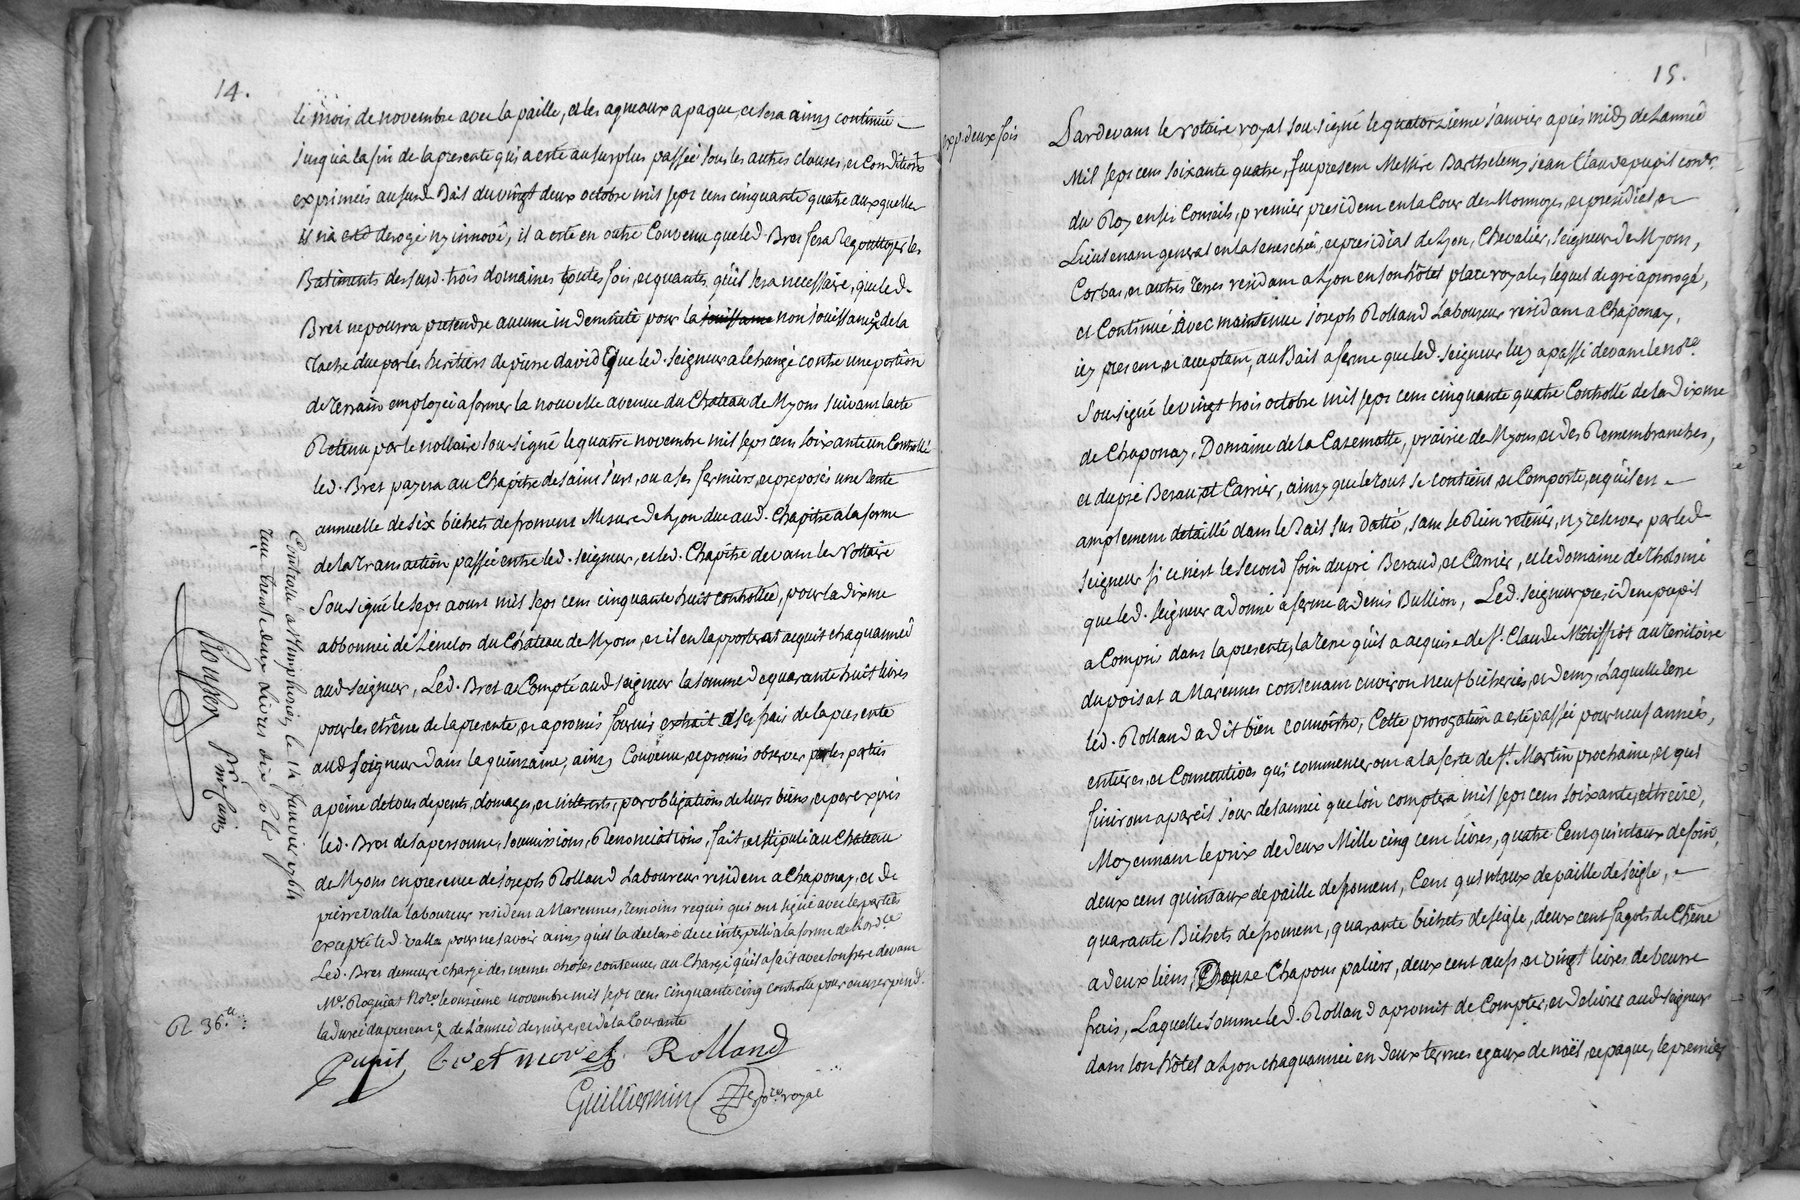 14.
le mois de novembre avec la paille, et les agneaux a paque, et sera ainsy continué
jusqu'a la fin de la presente qui a esté au surplus passée sous les autres clauses, et Conditions
exprimées au susd. Bail du vingt deux octobre mil sept cens cinquante quatre auxquelles
il n'a esté derogé ny innové, il a esté en outre Convenu que led. Bret fera Regouttoyer les
Batiments des susd. trois domaines toutes fois, et quantes qu'il sera necessaire, que led.
Bret ne pourra pretendre aucune indemnité pour la jouissance non jouissance de la
due par les heritiers de pierre david que led. seigneur a echangé contre une portion
de terrain employée a former la nouvelle avenue du Chateau de Myons suivant l'acte
Retenu par le nottaire soussigné le quatre novembre mil sept cens soixante un Controllé
led. Bret payera au Chapitre de saint Just, ou a ses fermiers, et preposés une Rente
annuelle de six bichets de froment Mesure de Lyon due aud. Chapitre a la forme
de la transaction passée entre led. seigneur, et led. Chapitre devant le Nottaire
Soussigné le sept aoust mil sept cens cinquante huit controllée, pour la dixme
abbonnée de L'enclos du Château de Myons, et il en rapportera acquit chaqu'année
aud seigneur, Led. Bret a Compté aud seigneur la somme de quarante huit livres
pour les etrêne de la presente, et a promis fournir extrait a ses frais de la presente
aud seigneur dans la quinzaine, ainsy Convenu, et promis observer par les parties
a peine de tous depents, domages, et interests, par obligations de leurs biens, et par exprès
led. Bret de sa personne, soumissions, Renonciations, fait, et stipulé au Chateau
de Myons en presence de Joseph Rolland Laboureur resident a Chaponay, et de
pierre Valla laboureur resident a Marennes, temoins requis qui ont signé avec les parties
excepté led. Valla pour ne savoir ainsy qu'il l'a declaré de ce interpellé a la forme de l'ord.ce
Led. Bret demeure chargé des memes choses contenues au Chargé qu'il a fait avec son frere devant
Me. Roquiat No.re le onzieme novembre mil sept cens cinquante cinq controllé pour en user pend.
la durée du present & de L'année derniere, et de la Courante
R 36.
Pupil Bret Rolland
Guilliermin No.re royal
Controllé a St Simphorien le 14 janvier 1764
Reçu trente deux livres dix sols
15.
exp. deux fois
Pardevant le Notaire royal soussigné le quatorzieme janvier après midy de L'année
Mil sept cens soixante quatre, fut present Messire Barthelemy jean Claude pupil con.er
du Roy en ses Conseils, premier president en la Cour des Monnoyes, et presidial, et
Lieutenant general en la senechée, et presidial de Lyon, Chevalier, seigneur de Myons,
Corbas, et autres terres residant a Lyon en son hôtel place royale, lequel de gré a prorogé,
et Continué avec maintenue Joseph Rolland Laboureur residant a Chaponay,
icy present, et acceptant, au Bail a ferme que led. seigneur luy a passé devant le no.re
Soussigné le vingt trois octobre mil sept cens cinquante quatre Controllé de la Dixme
de Chaponay, Domaine de la Casematte, prairie de Myons, et des Remembranches,
et du pré Beraud et Carrier, ainsy que le tout se contient, et Comporte, et qu'il en
amplement detaillé dans le Bail sus datté, sans le Rien retenir, ny reserver par led
seigneur si ce n'est le second foin du pré Beraud, et Carrier, et le domaine de
que led. seigneur a donné a ferme a denis Bullion, Led. seigneur president pupil
a Compris dans la presente, la terre qu'il a acquise de Sr. Claude au territoire
du poisat a Marennes contenant environ neuf bicherées, et demy, Laquelle terre
led. Rolland a dit bien connoitre, Cette prorogation a esté passée pour neuf années,
entieres, et Consecutives qui commenceront a la feste de St. Martin prochaine, et qui
finiront a pareil jour de l'année que l'on comptera mil sept cens soixante, et treize,
Moyennant le prix de deux Mille cinq cent livres, quatre Cent quintaux de foin,
deux cens quintaux de paille de froment, Cent quintaux de paille de seigle,
quarante Bichets de froment, quarante bichets de seigle, deux cent fagots de Chêne
a deux liens, Douze Chapons paliers, deux cent œufs, et vingt livres de beurre
frais, Laquelle somme led. Rolland a promit de Compter, et delivrer aud. seigneur
dans son hôtel a Lyon chaqu'année en deux termes egaux de noël, et paque, le premier